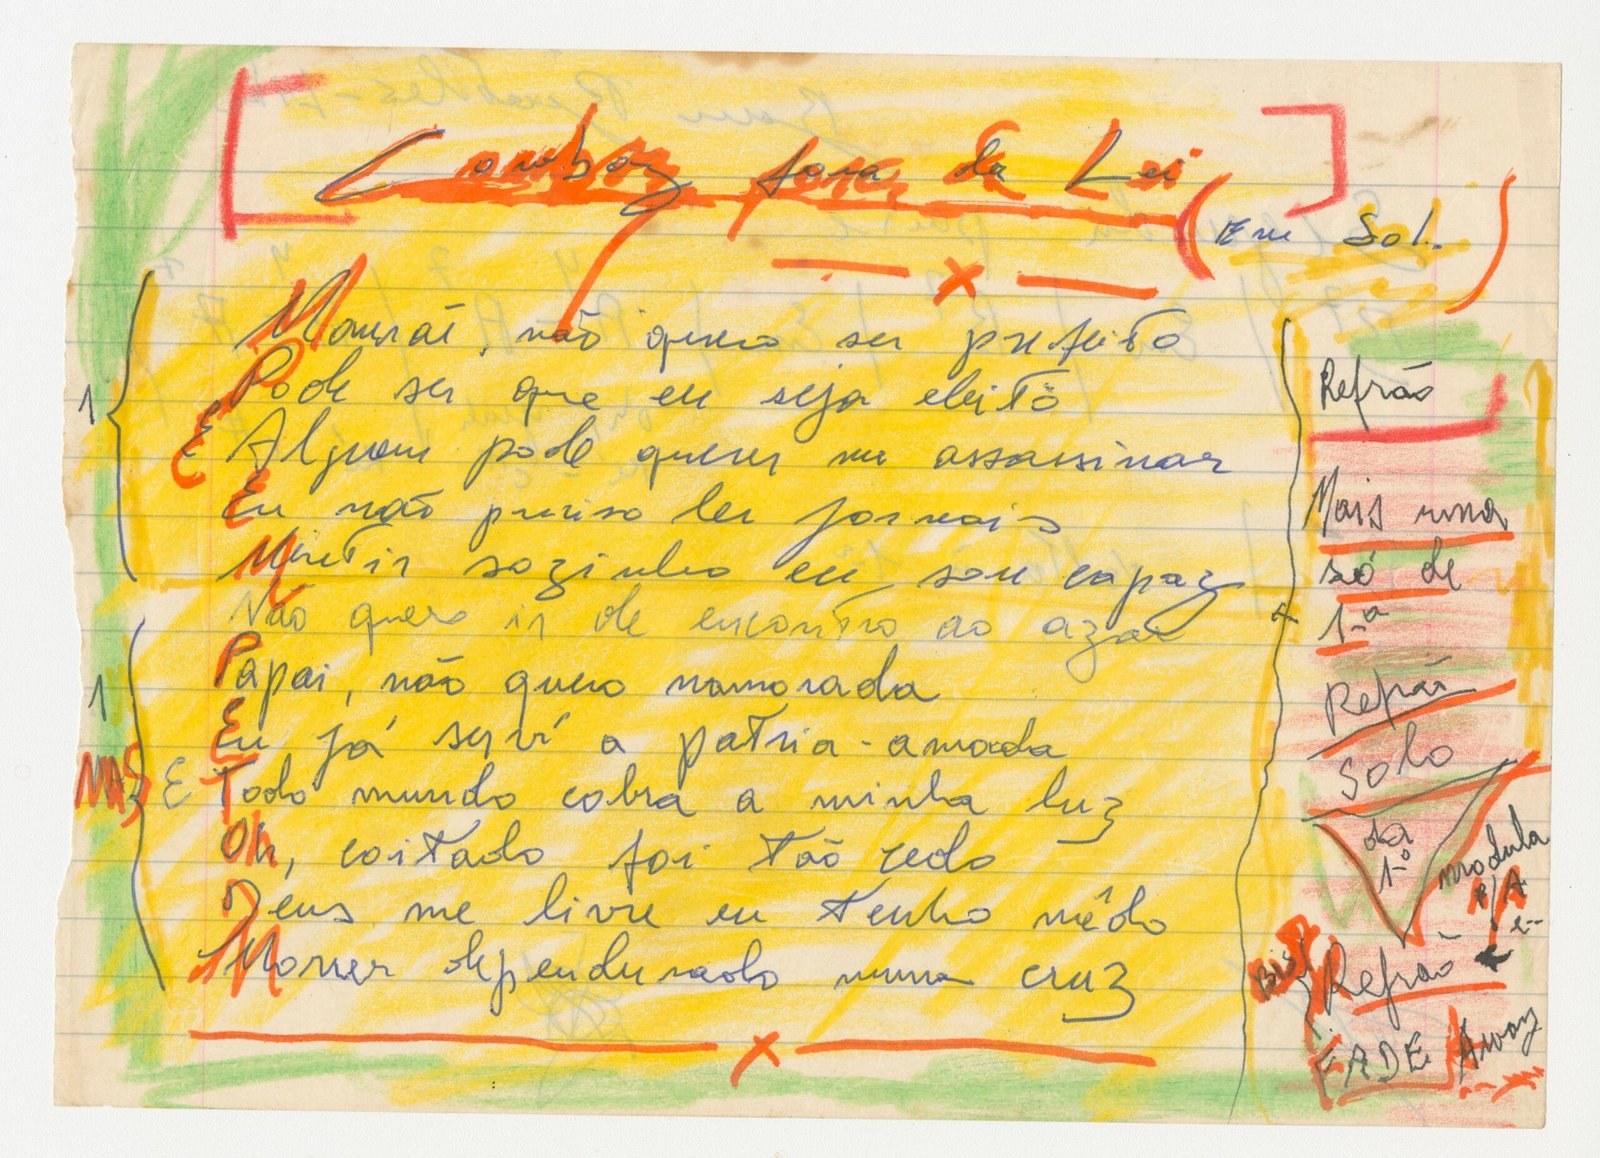 Cowboy fora da Lei
(Em Sol.)
1
Mamãe, não quero ser prefeito
Pode ser que eu seja eleito
E Alguem pode querer me assassinar
Eu não preciso ler jornais
Mentir sozinho eu sou capaz
Não quero ir de encontro ao azar
1
Papai, não quero namorada
Eu já serví a patria-amada
MAS E Todo mundo cobra a minha luz
Oh, coitado foi tão cedo
Deus me livre eu tenho mêdo
Morrer dependurado numa cruz
Refrão
Mais uma
só de
1ª
Refrão
Solo
da
1º
modula
P/A
e--
BIS Refrão
FADE Away